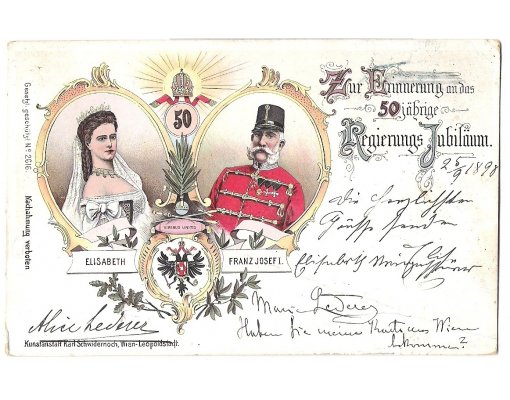 Zur Erinnerung an das
50 jährige
Regierungs Jubiläum.
25/9 1898
Die herzlichsten
Grüsse senden
Elisabeth
50
VIRIBUS UNITIS
ELISABETH
FRANZ JOSEF I.
Marie Lederer
Haben Sie meine Karte aus Wien
bekommen?
Alice Lederer
Kunstanstalt Karl Schwidernoch, Wien-Leopoldstadt.
Gesetzl. geschützt Nº 2616
Nachahmung verboten